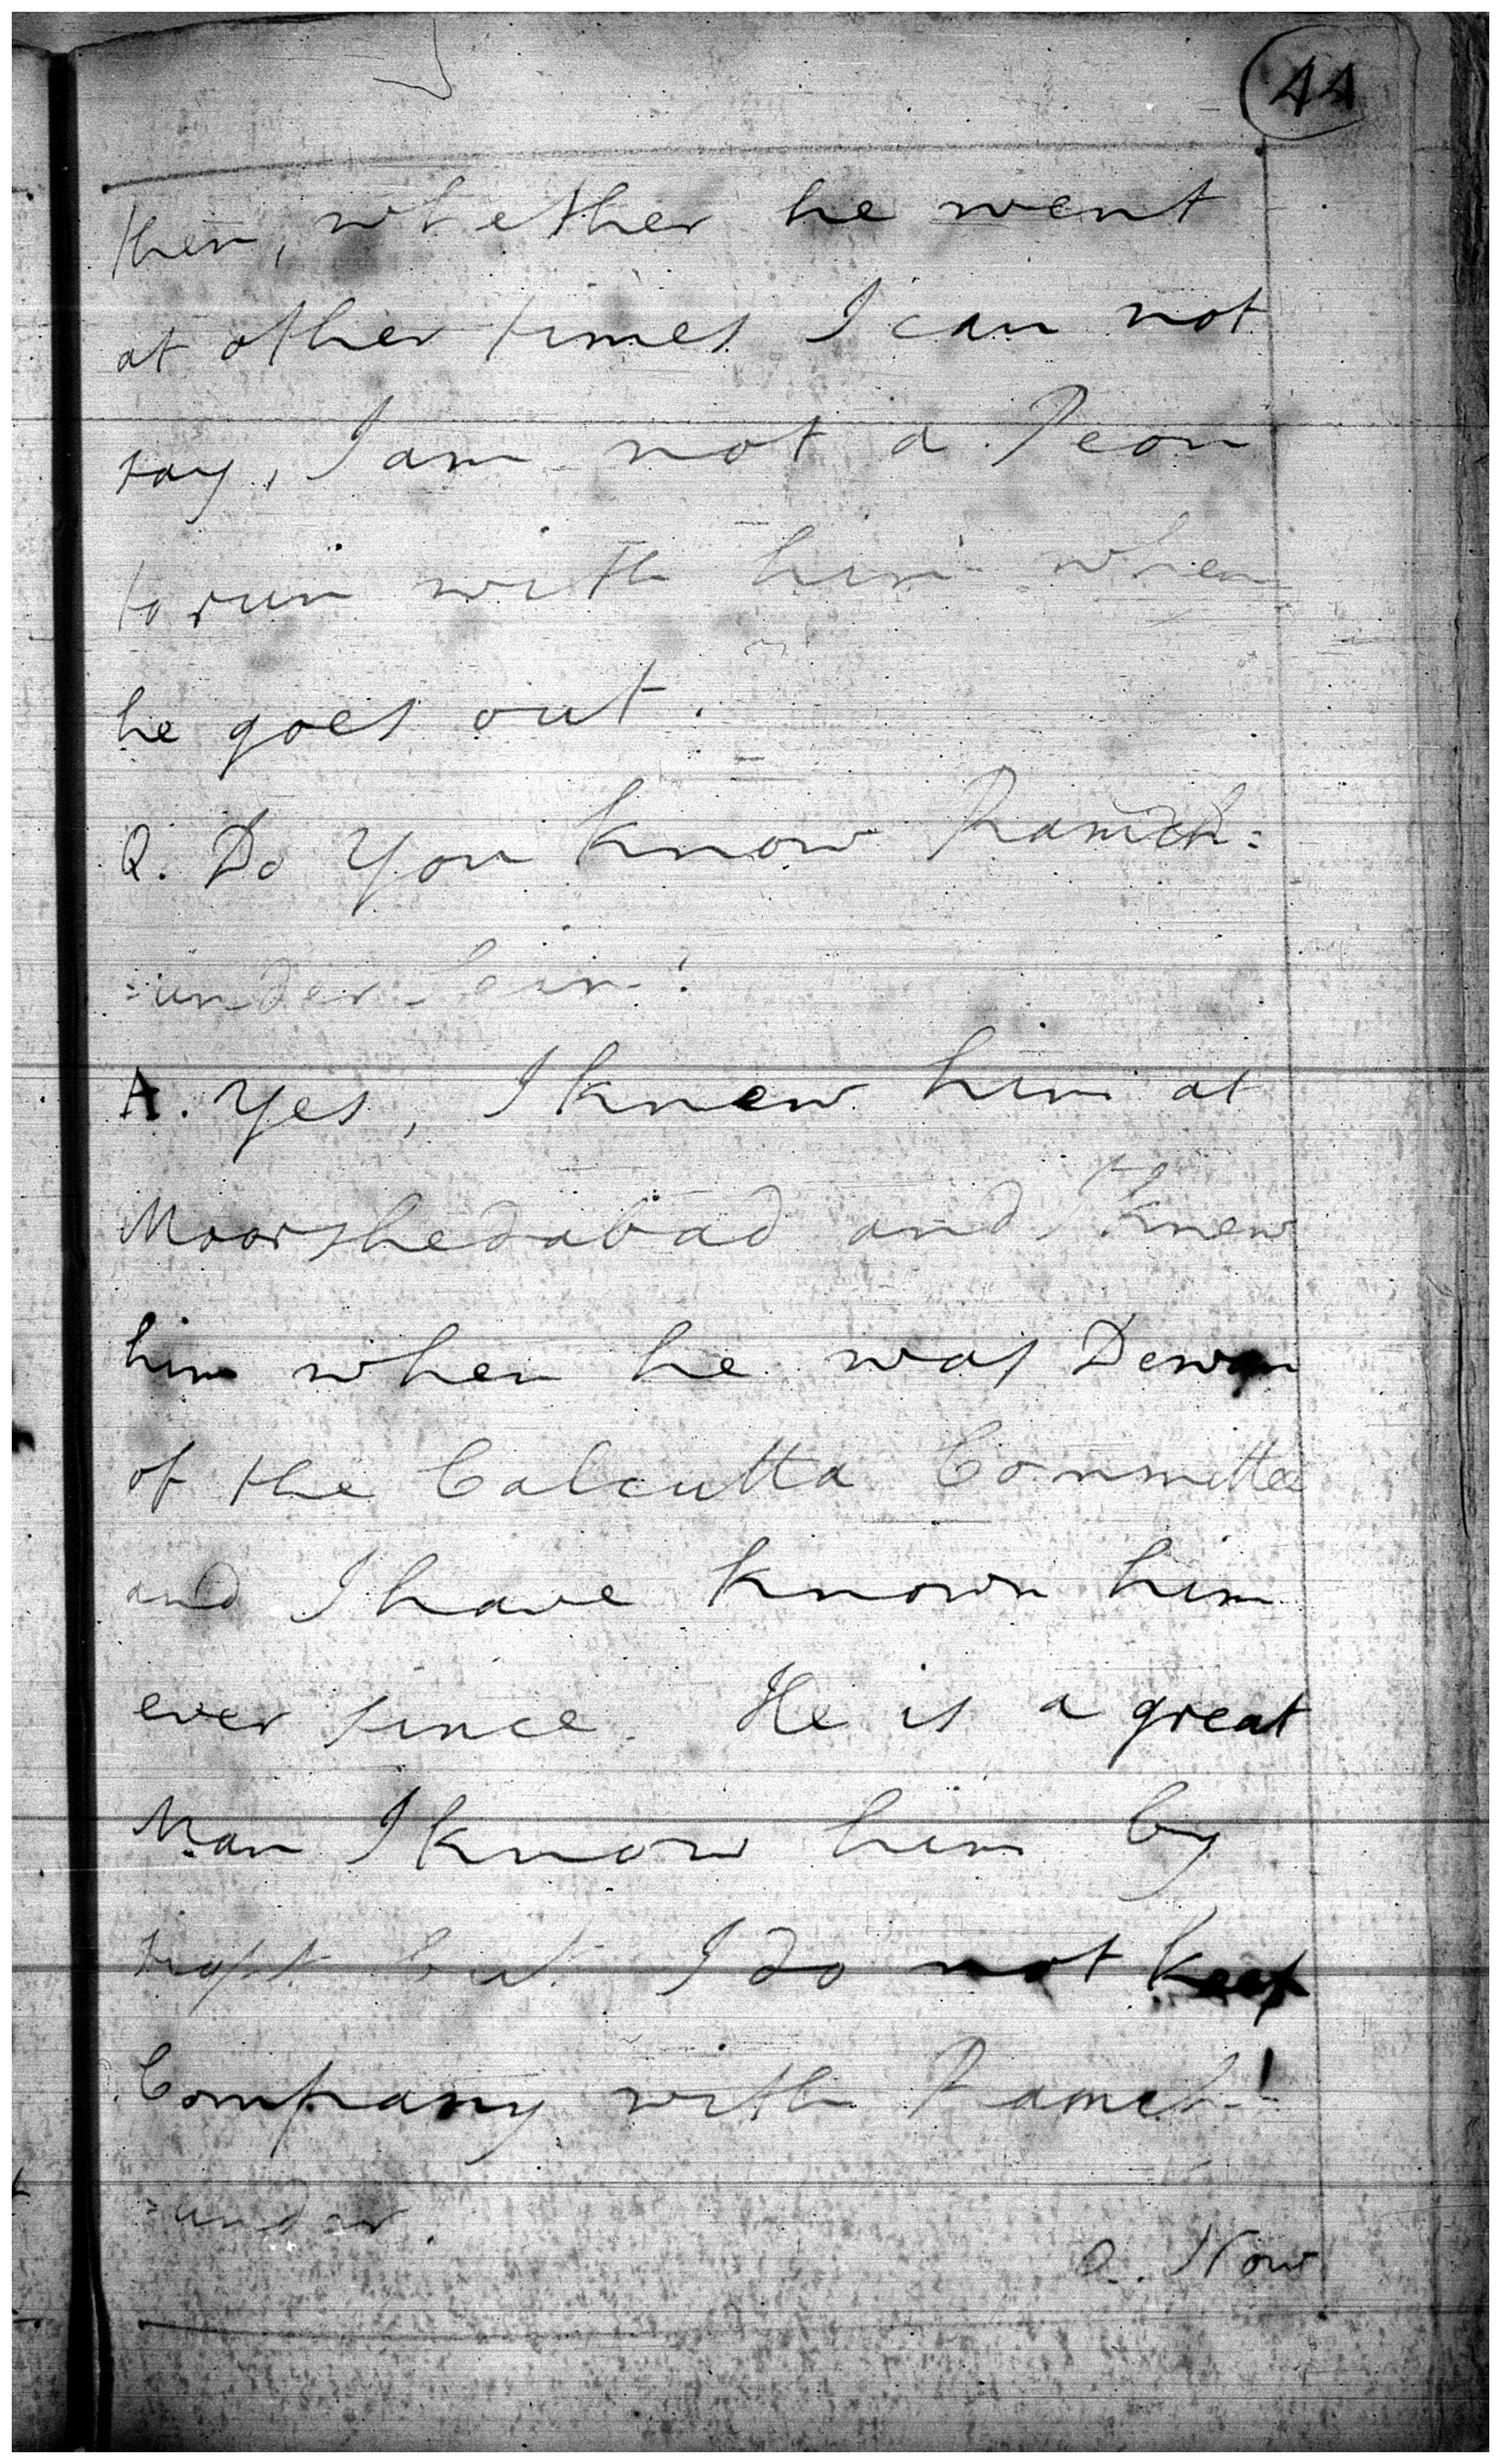 44
then, whether he went
at other times I can not
say, I am not a Peon
to run with him when
he goes out.
Q. Do you know Ramch=
=under Sein?
A. Yes, I knew him at
Moorshedabad and I knew
him when he was Dewan
of the Calcutta Committee
and I have known him
ever since. He is a great
Man I know him by
sight but I do not keep
Company with Ramch=
=under.
Q. Now